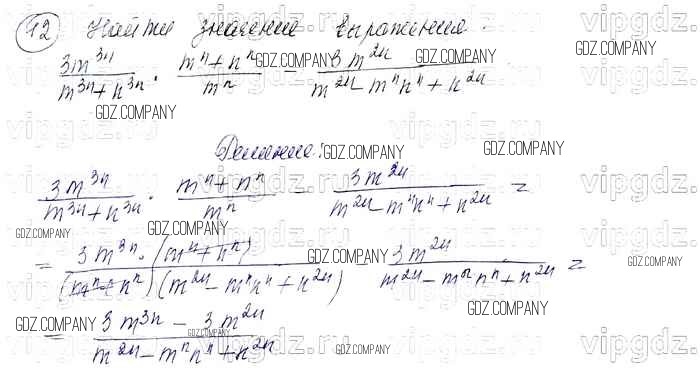 12 Найти значение выражения.
3m^{3n}/(m^{3n}+n^{3n}) · (m^n+n^n)/m^n − 3m^{2n}/(m^{2n}−m^n n^n+n^{2n})
Решение:
3m^{3n}/(m^{3n}+n^{3n}) · (m^n+n^n)/m^n − 3m^{2n}/(m^{2n}−m^n n^n+n^{2n}) =
= 3m^{3n}·(m^n+n^n)/((m^n+n^n)(m^{2n}−m^n n^n+n^{2n})) − 3m^{2n}/(m^{2n}−m^n n^n+n^{2n}) =
= (3m^{3n}−3m^{2n})/(m^{2n}−m^n n^n+n^{2n})
GDZ.COMPANY
vipgdz.ru